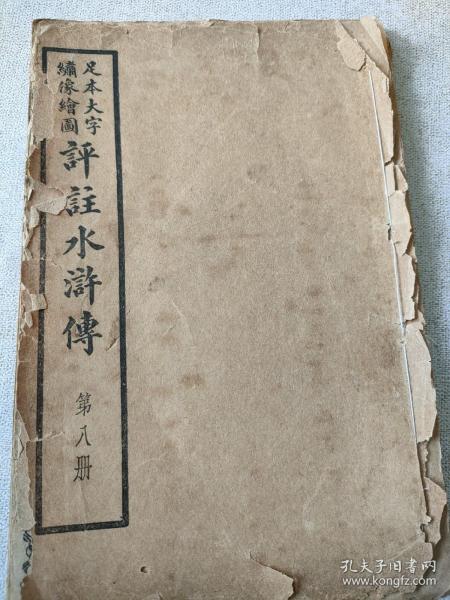 足本大字
繡像繪圖
評註水滸傳
第八册
孔夫子旧书网
www.kongfz.com